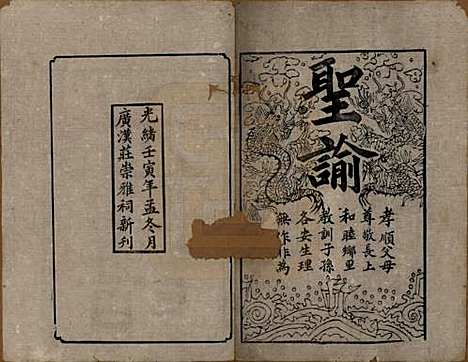 聖諭
孝順父母
尊敬長上
和睦鄉里
教訓子孫
各安生理
無作非為
光緒壬寅年孟冬月
廣漢莊崇雅祠新刊